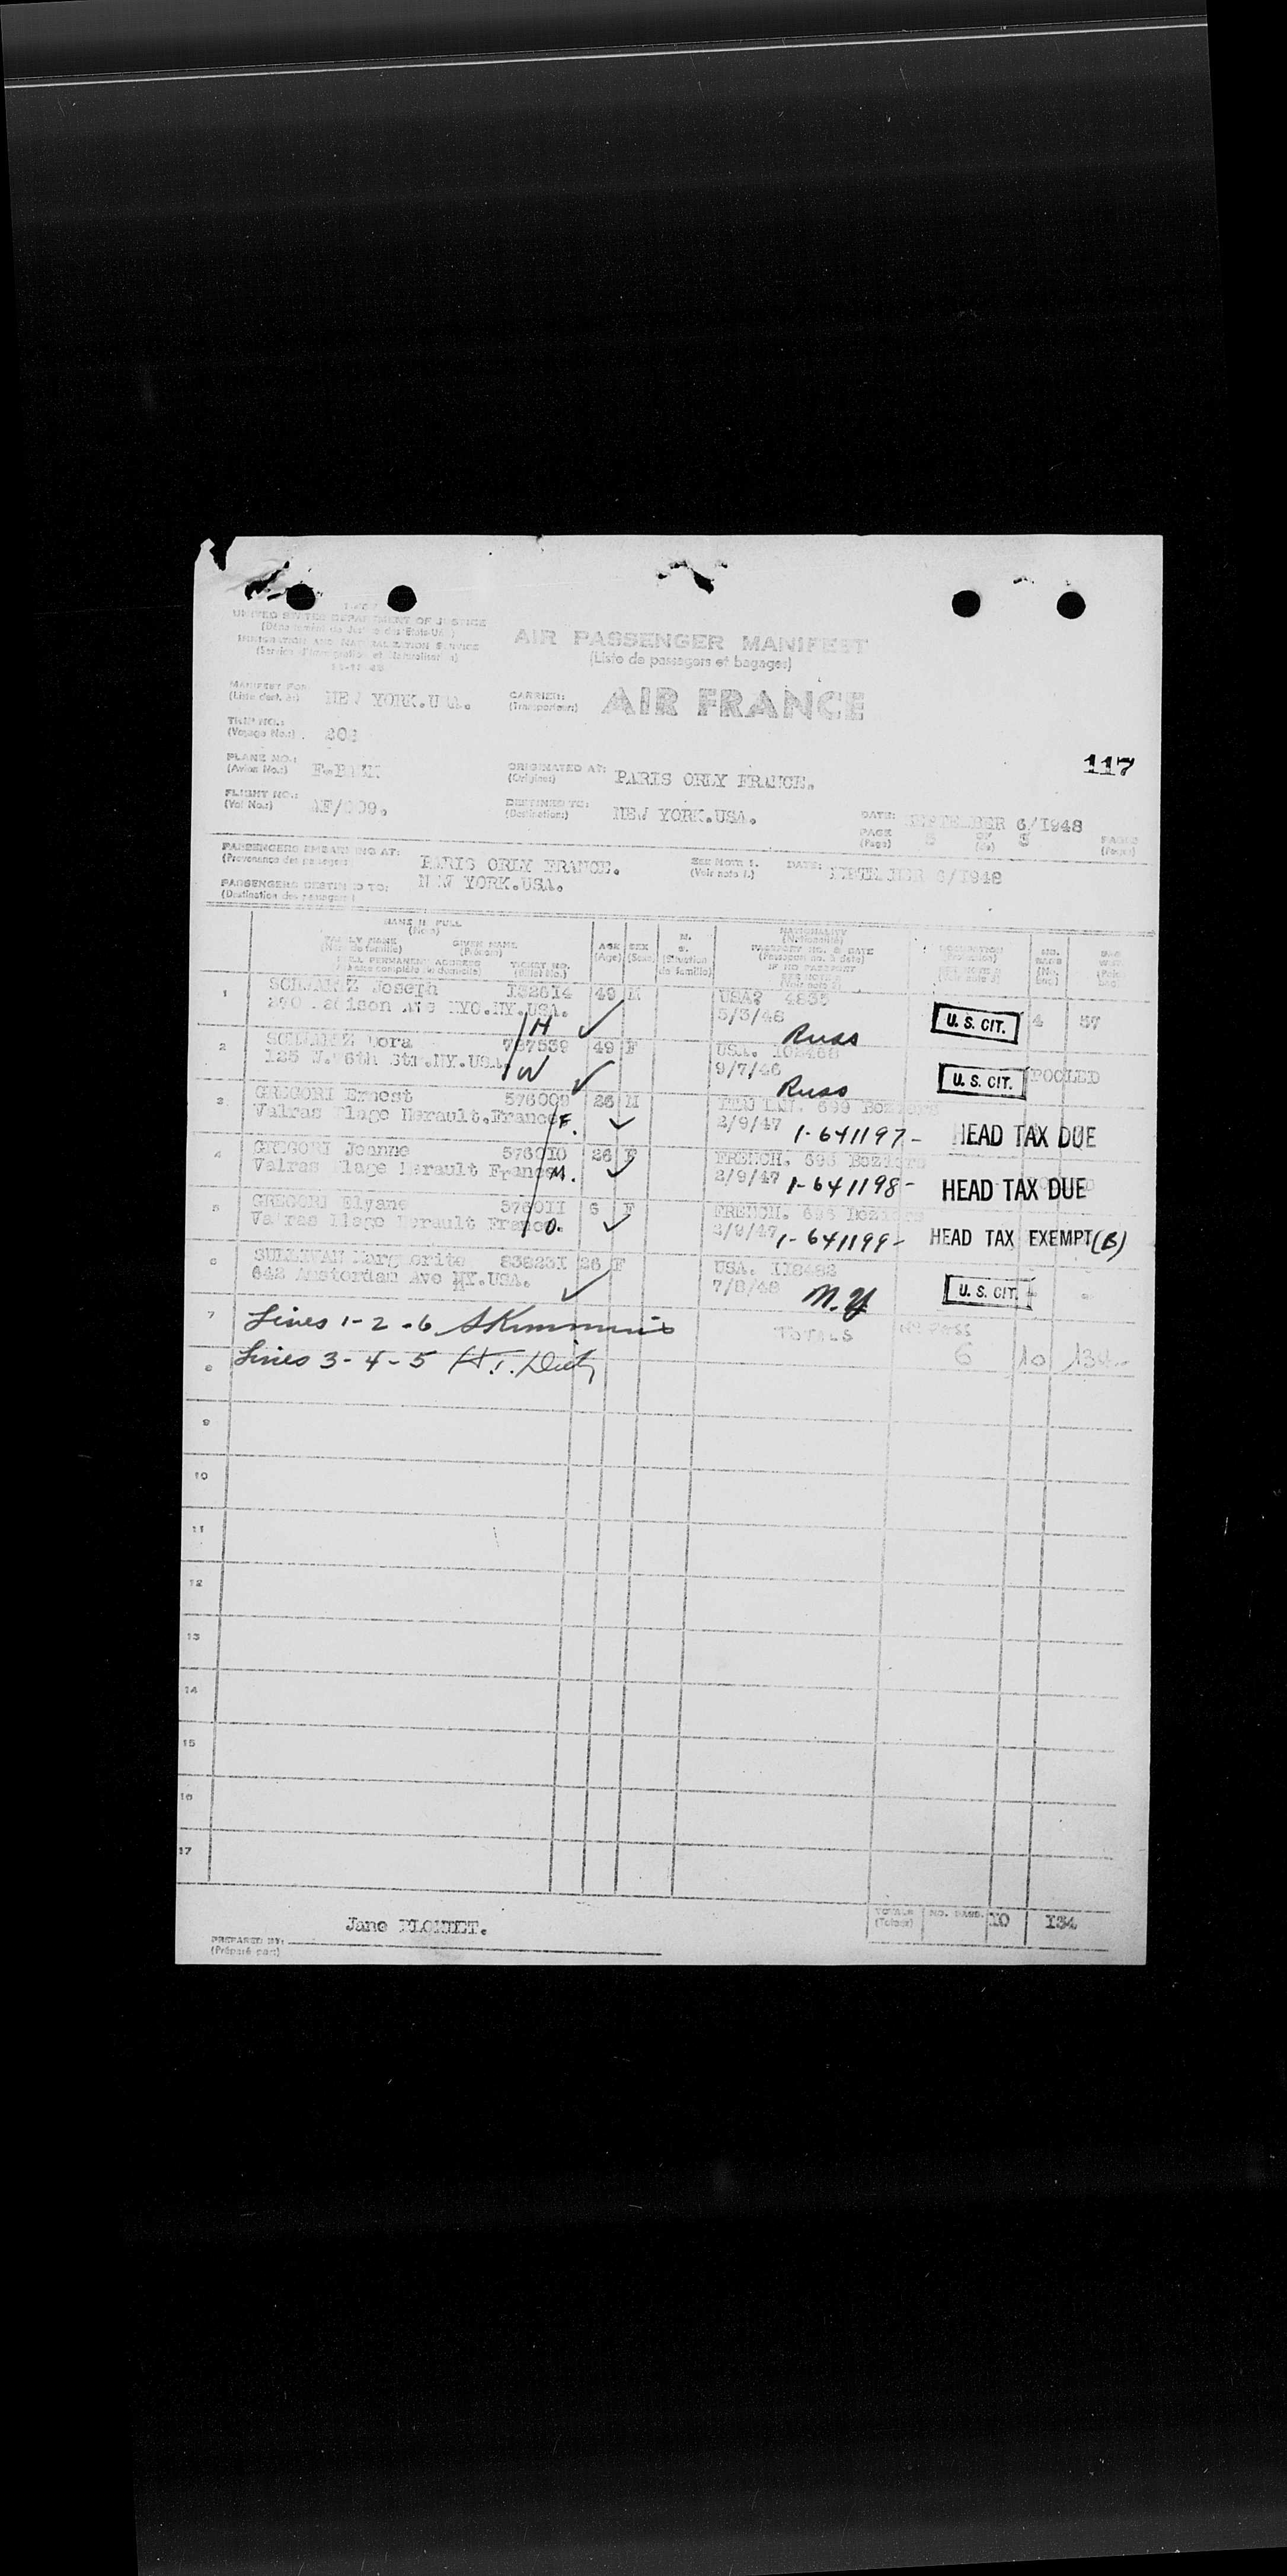 UNITED STATES DEPARTMENT OF JUSTICE
IMMIGRATION AND NATURALIZATION SERVICE
AIR PASSENGER MANIFEST
(Liste de passagers et bagages)
MANIFEST FOR NEW YORK.USA.
CARRIER: AIR FRANCE
(Transporteur)
TRIP NO.:
(Voyage No.:)
117
PLANE NO.:
(Avion No.:)
ORIGINATED AT: PARIS ORLY FRANCE.
(Origine)
FLIGHT NO.: AF/009.
(Vol No.:)
DESTINED TO: NEW YORK.USA.
(Destination:)
DATE: SEPTEMBER 6/1948
PAGE 5 OF 5 PAGES
(Page) (de) (Pages)
PASSENGERS EMBARKING AT: PARIS ORLY FRANCE.
(Provenance des passagers)
SEE NOTE 1. DATE: SEPTEMBER 6/1948
(Voir note 1.)
PASSENGERS DESTINED TO: NEW YORK.USA.
(Destination des passagers)
NAME IN FULL
(Nom)
FAMILY NAME GIVEN NAME
(Nom de famille) (Prénom)
FULL PERMANENT ADDRESS TICKET NO.
(Adresse complète de domicile) (Billet No.)
AGE SEX
(Age) (Sexe)
M. S.
(Situation de famille)
NATIONALITY
(Nationalité)
PASSPORT NO. & DATE
(Passeport no. & date)
IF NO PASSPORT
SEE NOTE
OCCUPATION
NO. BAGS
BAG WGT.
1 SCHWARTZ Joseph 132614 49 M USA? 4835 4 57
Madison Ave NYC.NY.USA. 5/3/48 U. S. CIT.
H Russ
2 SCHWARTZ Dora 787539 49 F USA. POOLED
NY.USA. 9/7/46 U. S. CIT.
W Russ
3 GREGORI Ernest 576009 26 M 699 Beziers
Valras Plage Herault.France F. 2/9/47 1-641197- HEAD TAX DUE
4 GREGORI Jeanne 576010 26 F FRENCH. 695 Beziers
Valras Plage Herault France M. 2/9/47 1-641198- HEAD TAX DUE
5 GREGORI Elyane 576011 6 F FRENCH. Beziers
Valras Plage Herault France D. 2/9/47 1-641199- HEAD TAX EXEMPT (B)
6 SULLIVAN Marguerite 838231 26 F USA. 118482
642 Amsterdam Ave NY.USA. 7/8/48 N.Y U. S. CIT.
7 Lines 1-2-6
TOTALS No Pass 6 10 134
8 Lines 3-4-5
9
10
11
12
13
14
15
16
17
TOTALS NO. PASS. 10 134
(Totaux)
Jane
PREPARED BY:
(Préparé par:)